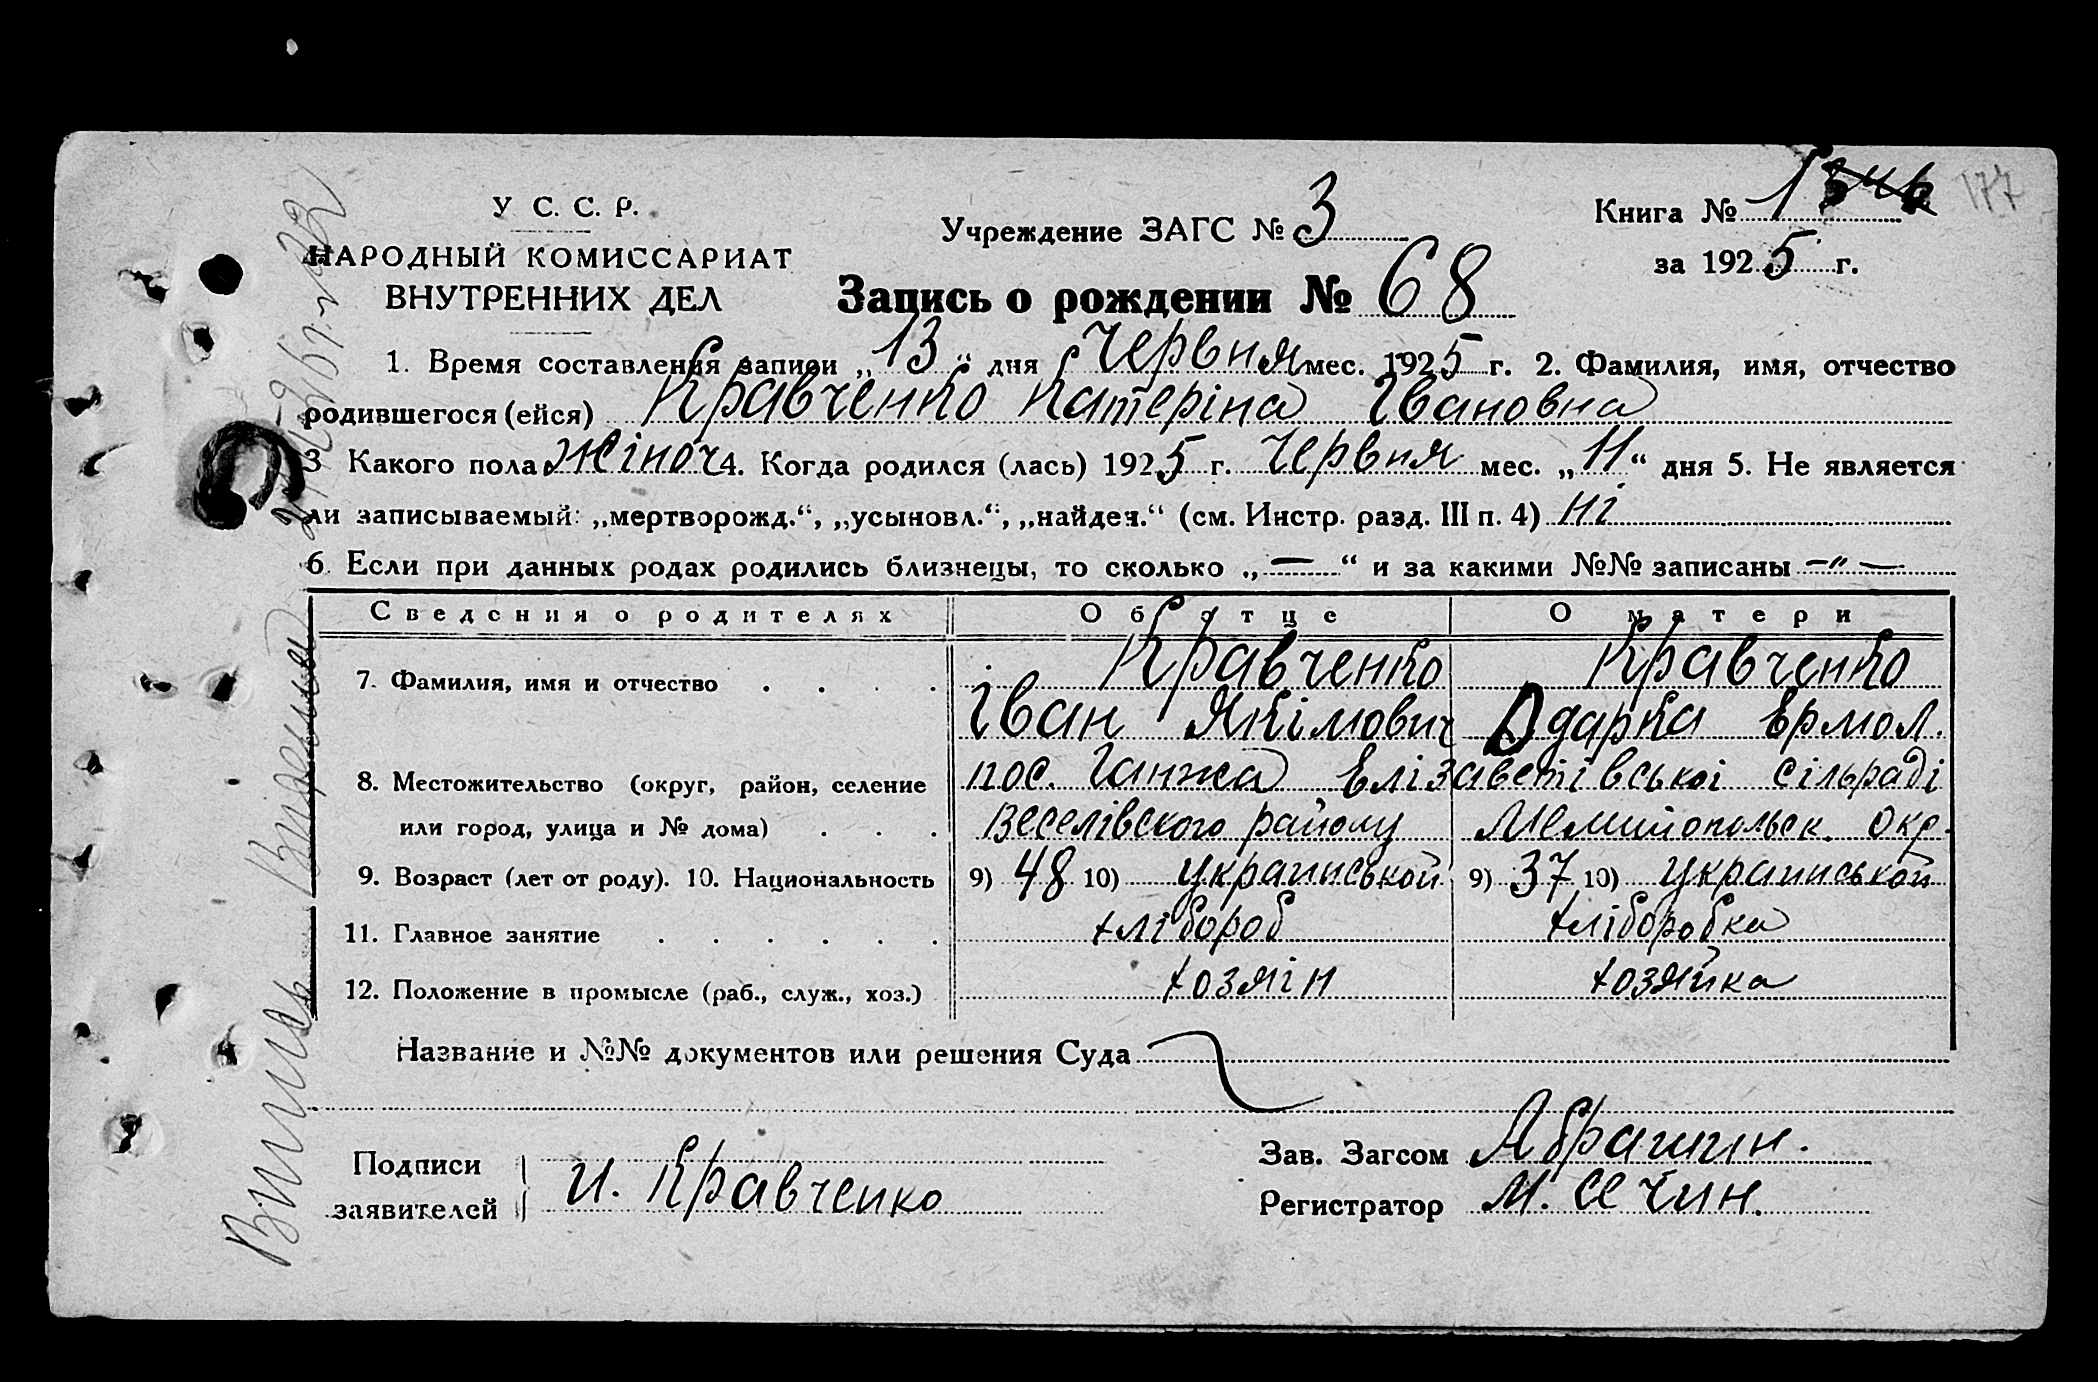 У С. С. Р.
НАРОДНЫЙ КОМИССАРИАТ
ВНУТРЕННИХ ДЕЛ
Учреждение ЗАГС № 3
Книга № 1
177
за 1925 г.
Запись о рождении № 68
1. Время составления записи „13“ дня Червня мес. 1925 г. 2. Фамилия, имя, отчество
родившегося (ейся) Кравченко Катеріна Івановна
3 Какого пола жіноч 4. Когда родился (лась) 1925 г. Червня мес. „11“ дня 5. Не является
ли записываемый: „мертворожд.“, „усыновл.“, „найден.“ (см. Инстр. разд. III п. 4) ні
6. Если при данных родах родились близнецы, то сколько „—“ и за какими №№ записаны —"—
Сведения о родителях Об отце О матери
7. Фамилия, имя и отчество . . . . Кравченко Кравченко
Іван Якімович Одарка Ермол.
8. Местожительство (округ, район, селение пос. Ганжа Елізаветівськоі сільраді
или город, улица и № дома) . . . Веселівского району Мелитопольск. Окр.
9. Возраст (лет от роду). 10. Национальность 9) 48 10) украинськой 9) 37 10) украинськой
11. Главное занятие . . . . . . хлібороб хліборобка
12. Положение в промысле (раб., служ., хоз.) хозяін хозяйка
Название и №№ документов или решения Суда
Подписи
заявителей И. Кравченко
Зав. Загсом
Регистратор М. Сечин.